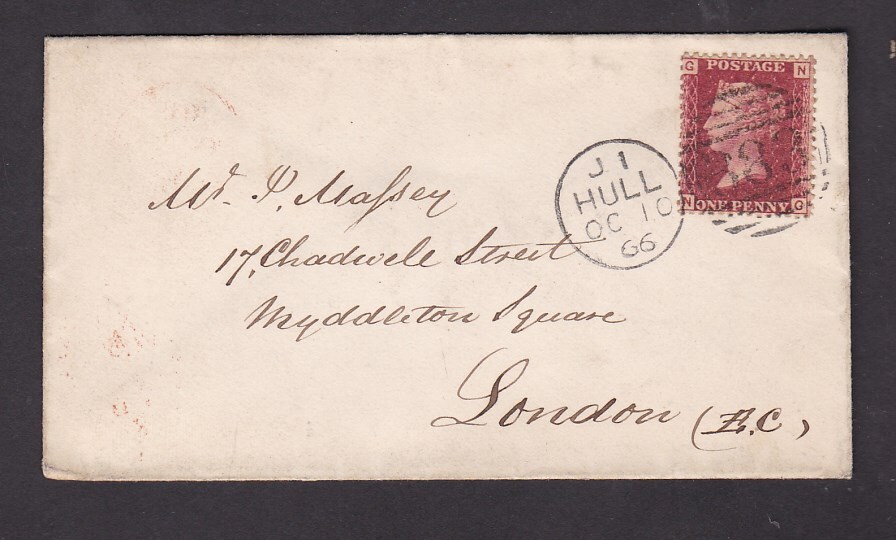 G POSTAGE N
N ONE PENNY G
J 1
HULL
OC 10
66
Mr. P. Maſsey
17, Chadwell Street
Myddleton Square
London (E.C,)